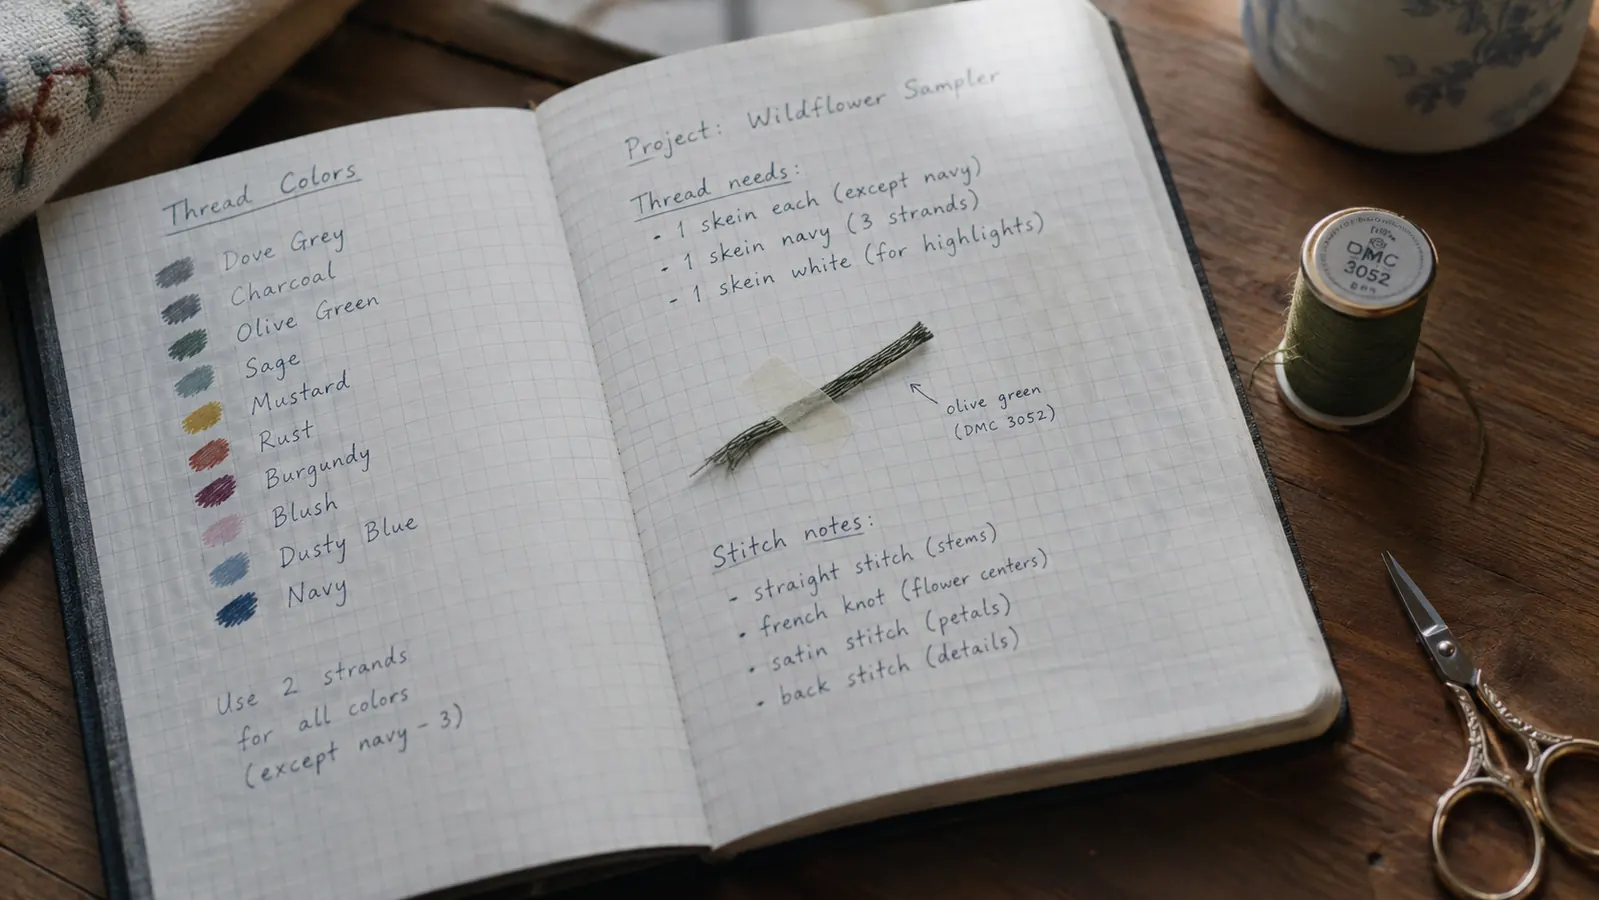 Thread Colors
Dove Grey
Charcoal
Olive Green
Sage
Mustard
Rust
Burgundy
Blush
Dusty Blue
Navy
Use 2 strands
for all colors
(except navy - 3)
Project: Wildflower Sampler
Thread needs:
- 1 skein each (except navy)
- 1 skein navy (3 strands)
- 1 skein white (for highlights)
olive green
(DMC 3052)
Stitch notes:
- straight stitch (stems)
• french knot (flower centers)
• satin stitch (petals)
• back stitch (details)
DMC
3052